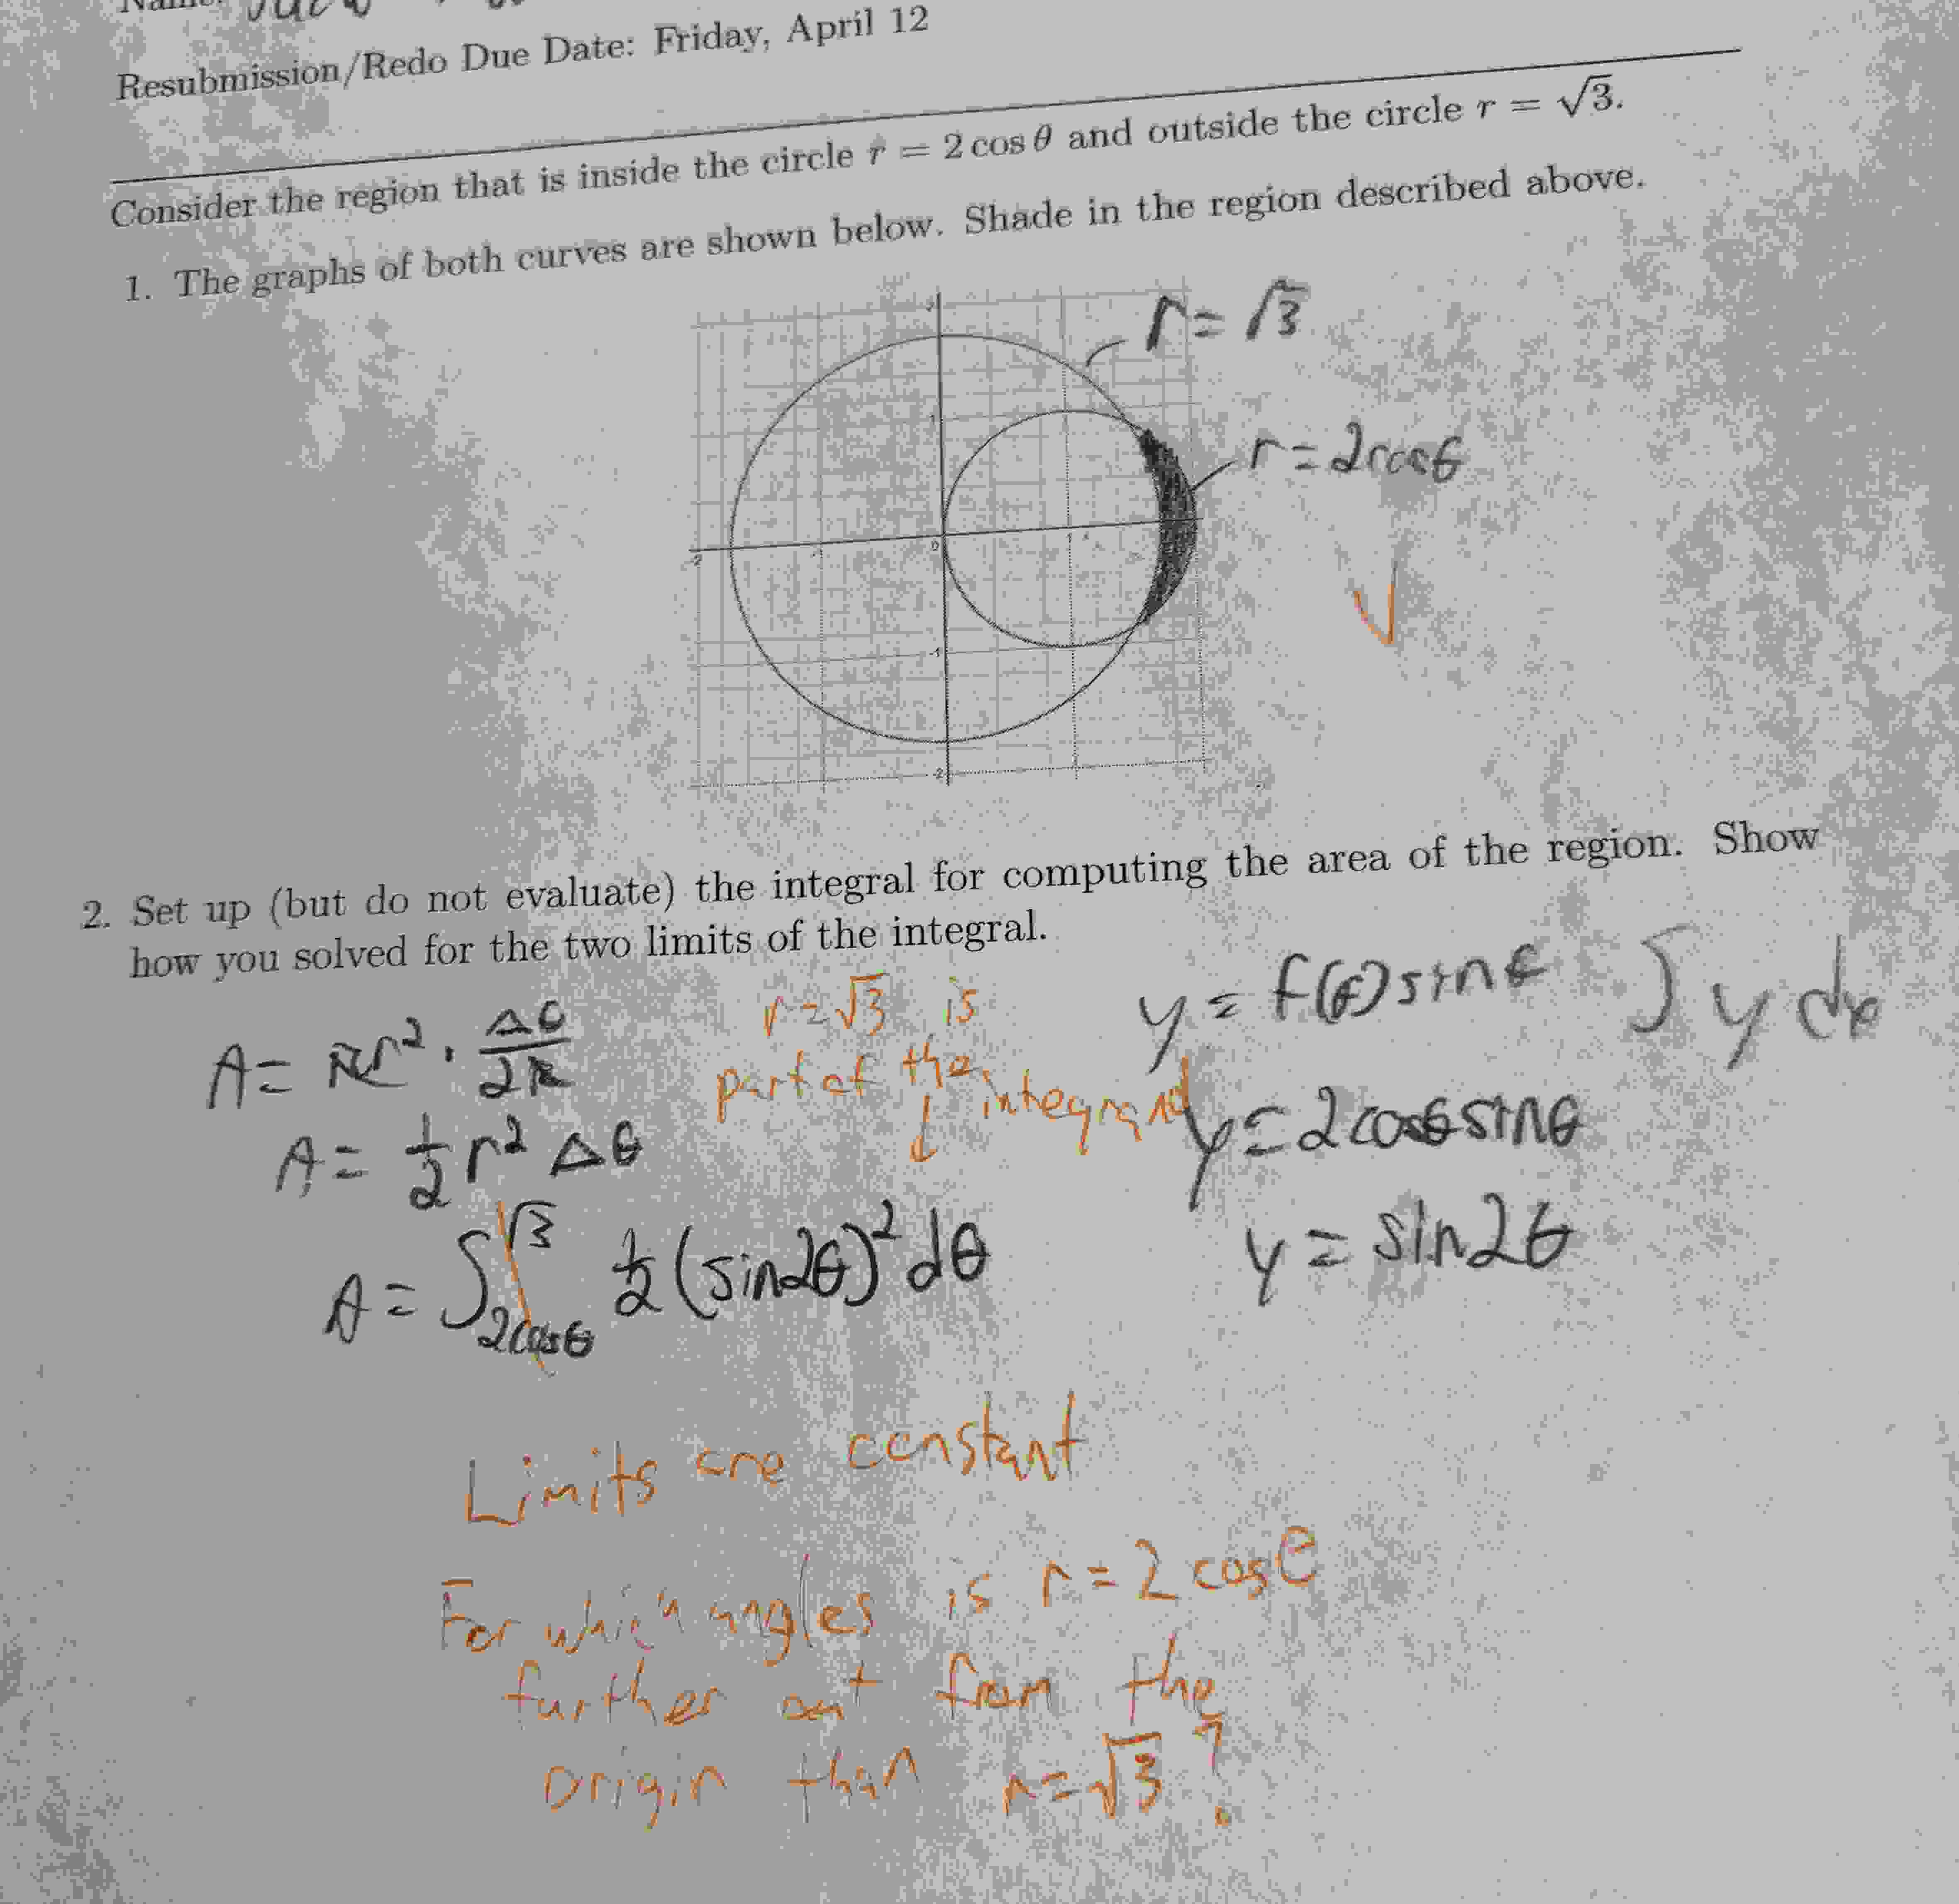 Resubmission/Redo Due Date: Friday, April 12
Consider the region that is inside the circle r = 2 cos θ and outside the circle r = √3.
1. The graphs of both curves are shown below. Shade in the region described above.
r = √3
r = 2cosθ
1
-2
-1
0
-1
-2
2. Set up (but do not evaluate) the integral for computing the area of the region. Show
how you solved for the two limits of the integral.
A = πr² · Δθ/2π
A = ½ r² Δθ
A = ∫_{2cosθ}^{√3} ½ (sin2θ)² dθ
r = √3 is
part of the
↓ integrand
y = f(θ) sinθ ∫ y dx
y = 2cosθ sinθ
y = sin2θ
Limits are constant
For which angles is r = 2 cos θ
further out from the
origin than r = √3 ?